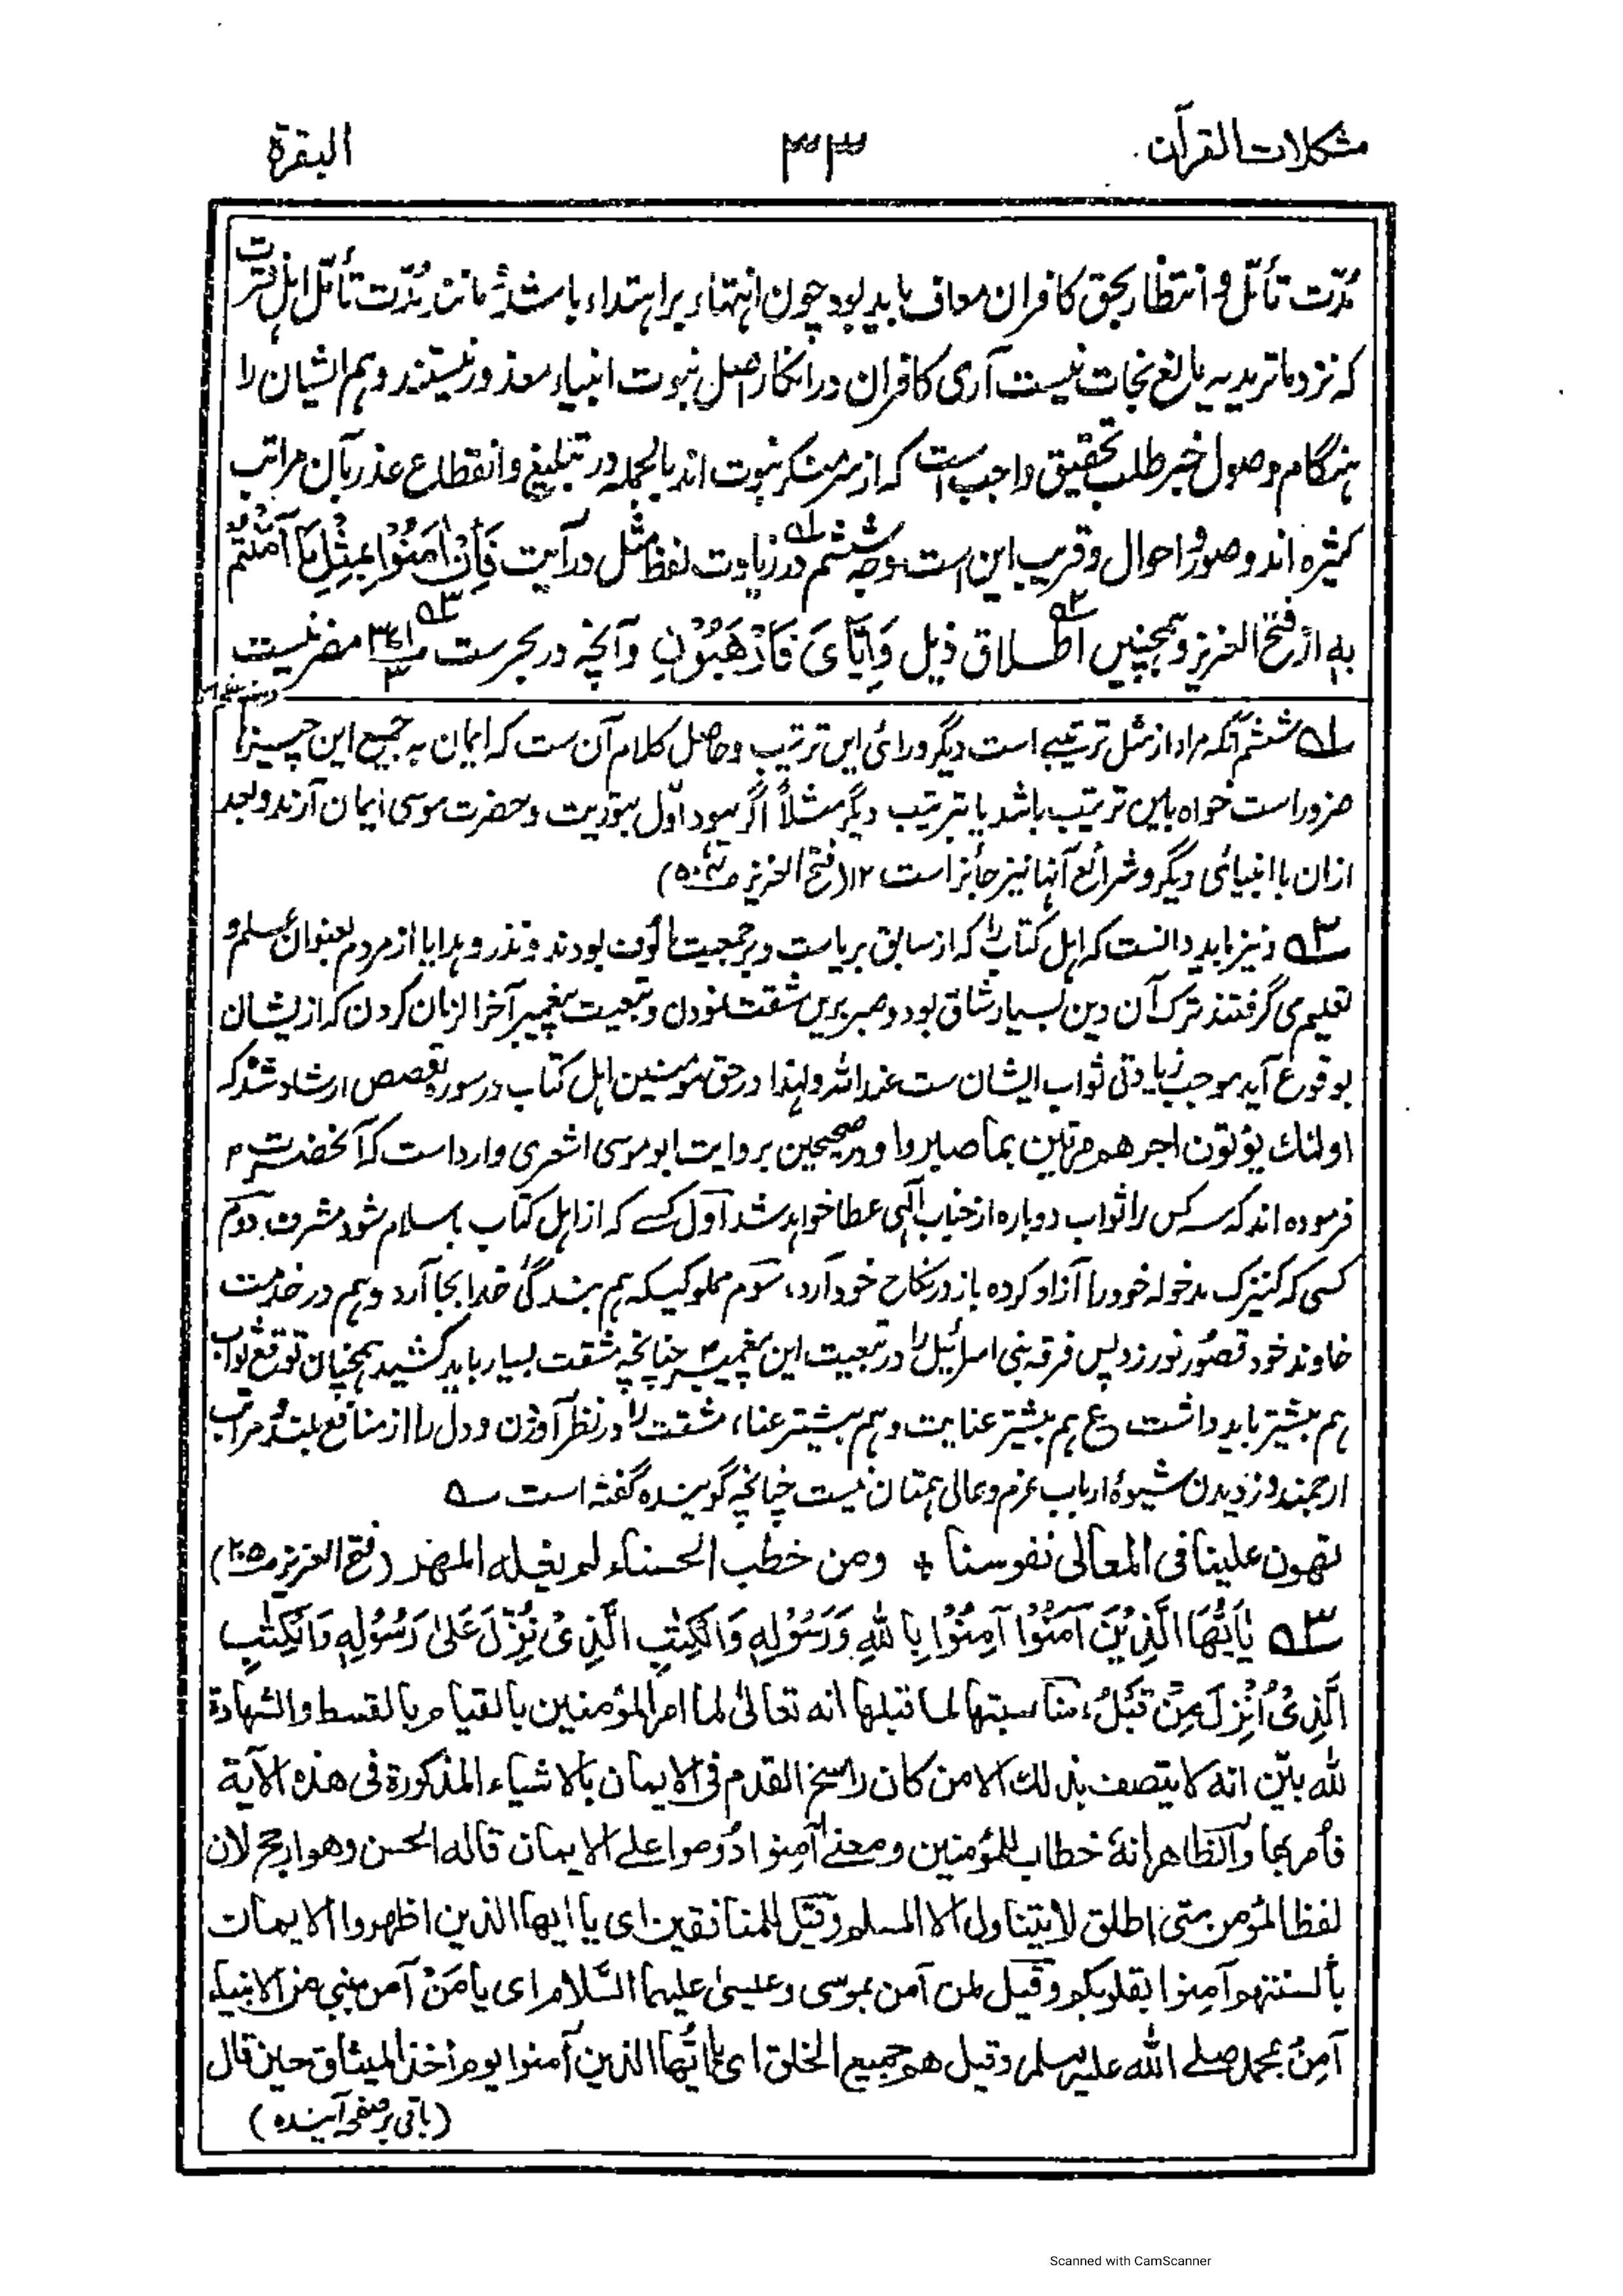 مشکلات القرآن
۳۳
البقرة
مُدّت تأمّل و انتظار بحق کافران معاف باید بود چون انتہاء بر ابتداء باشد مانند مُدّت تأمّل اہل فترت
کہ نزد ماتریدیہ بالغ نجات نیست آری کافران در انکار اصل نبوت انبیاء معذور نیستند وہم ایشان را
ہنگام وصول خبر طلب تحقیق واجب است کہ از سر منکر نبوت اند بالجملہ در تبلیغ وانقطاع عذر بآن مراتب
کثیرہ اند وصور احوال و قریب این است وجہ ششم ۱ در زیادت لفظ مثل در آیت فَاِنْ اٰمَنُوْا بِمِثْلِ مَا آمَنْتُمْ
بِہٖ از فتح العزیز وہمچنیں ۲ اطلاق ذیل وَاِیَّایَ فَارْهَبُوْنِ وآنچہ در بحرست ۳ ص۳۷۱ ۳ مضر نیست
۱ ششم آنکہ مراد از مثل ترتیبے است دیگر ورائ ایں ترتیب وحاصل کلام آن ست کہ ایمان بہ جمیع این چیزہا
ضرور است خواہ باین ترتیب باشد یا بترتیب دیگر مثلاً اگر یہود اوّل بتوریت وحضرت موسی ایمان آرند وبعد
ازان با انبیائ دیگر وشرائع آنہا نیز جائز است ۱۲ (فتح العزیز)
۲ ونیز باید دانست کہ اہل کتاب را کہ از سابق بریاست وبرجمعیت مالوف بودند ونذر وہدایا از مردم بعنوان علم و
تعلیم می گرفتند ترک آن دین بسیار شاق بود وصبر بریں مشقت نمودن وتبعیت پیغمبر آخر الزمان کردن کہ از یشان
بوقوع آید موجب زیادتی ثواب ایشان ست عند اللہ ولہذا در حق مؤمنین اہل کتاب در سورہ قصص ارشاد شد کہ
اولئك يؤتون اجرهم مرتين بما صبروا ودر صحیحین بروایت ابو موسی اشعری وارد است کہ آنحضرت
فرمودہ اند کہ سہ کس را ثواب دوبارہ از جناب الٰہی عطا خواہد شد اول کسے کہ از اہل کتاب باسلام شود مشرف دوم
کسی کہ کنیزک مدخولہ خود را آزاد کردہ باز در نکاح خود آرد، سوم مملوکیکہ ہم بندگئ خدا بجا آرد وہم در خدمت
خاوند خود قصور نورزد پس فرقہ بنی اسرائیل را در تبعیت این پیغمبر چنانچہ مشقت بسیار باید کشید ہمچنان توقع ثواب
ہم بیشتر باید داشت ع ہم بیشتر عنایت وہم بیشتر عناء، مشقت را در نظر آوردن و دل را از منافع بلند و مراتب
ارجمند دزدیدن شیوۂ ارباب عزم وعالی ہمتان نیست چنانچہ گویندہ گفتہ است ؎
تهون علينا فى المعالى نفوسنا ٭ ومن خطب الحسناء لم يغله المهر (فتح العزیز)
۳ يٰاَيُّهَا الَّذِيْنَ آمَنُوْا آمِنُوْا بِاللهِ وَرَسُوْلِهٖ وَالْكِتٰبِ الَّذِىْ نَزَّلَ عَلٰى رَسُوْلِهٖ وَالْكِتٰبِ
الَّذِىْ اُنْزِلَ مِنْ قَبْلُ، مناسبتها لما قبلها انه تعالىٰ لما امر المؤمنين بالقيام بالقسط والشهادة
لله بين انه لا يتصف بذلك الا من كان راسخ القدم فى الايمان بالاشياء المذكورة فى هذه الآية
فأمر بها والظاهر انهٗ خطاب للمؤمنين ومعنى آمنوا دُوموا على الايمان قاله الحسن وهو ارجح لان
لفظ المؤمن متى اطلق لا يتناول الا المسلم وقيل للمنافقين اى يا ايها الذين اظهروا الايمان
بألسنتهم آمنوا بقلوبكم وقيل لمن آمن بموسى وعيسىٰ عليهما السَّلام اى يا مَنْ آمن بنبي من الانبياء
آمِن بمحمد صلے الله عليه وسلم وقيل هم جميع الخلق اى يا ايُّها الذين آمنوا يوم اخذ الميثاق حين قال
(باقی بر صفحہ آیندہ)
Scanned with CamScanner